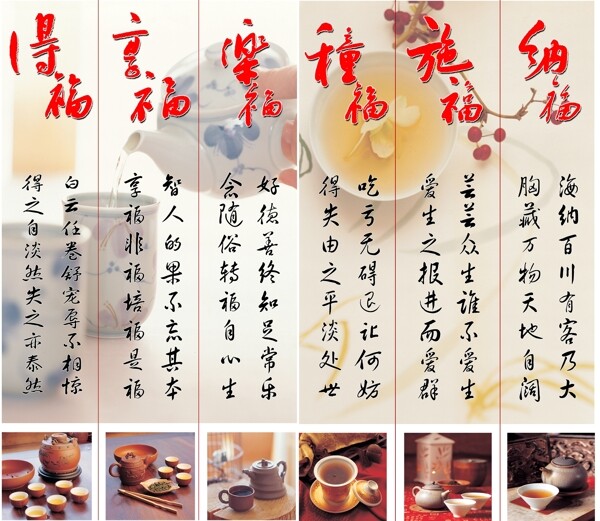 纳福
海纳百川有客乃大
胸藏万物天地自阔
施福
芸芸众生谁不爱生
爱生之报进而爱群
種福
吃亏无碍退让何妨
得失由之平淡处世
樂福
好德善终知足常乐
念随俗转福自心生
享福
智人的果不忘其本
享福非福培福是福
得福
白云任卷舒宠辱不相惊
得之自淡然失之亦泰然